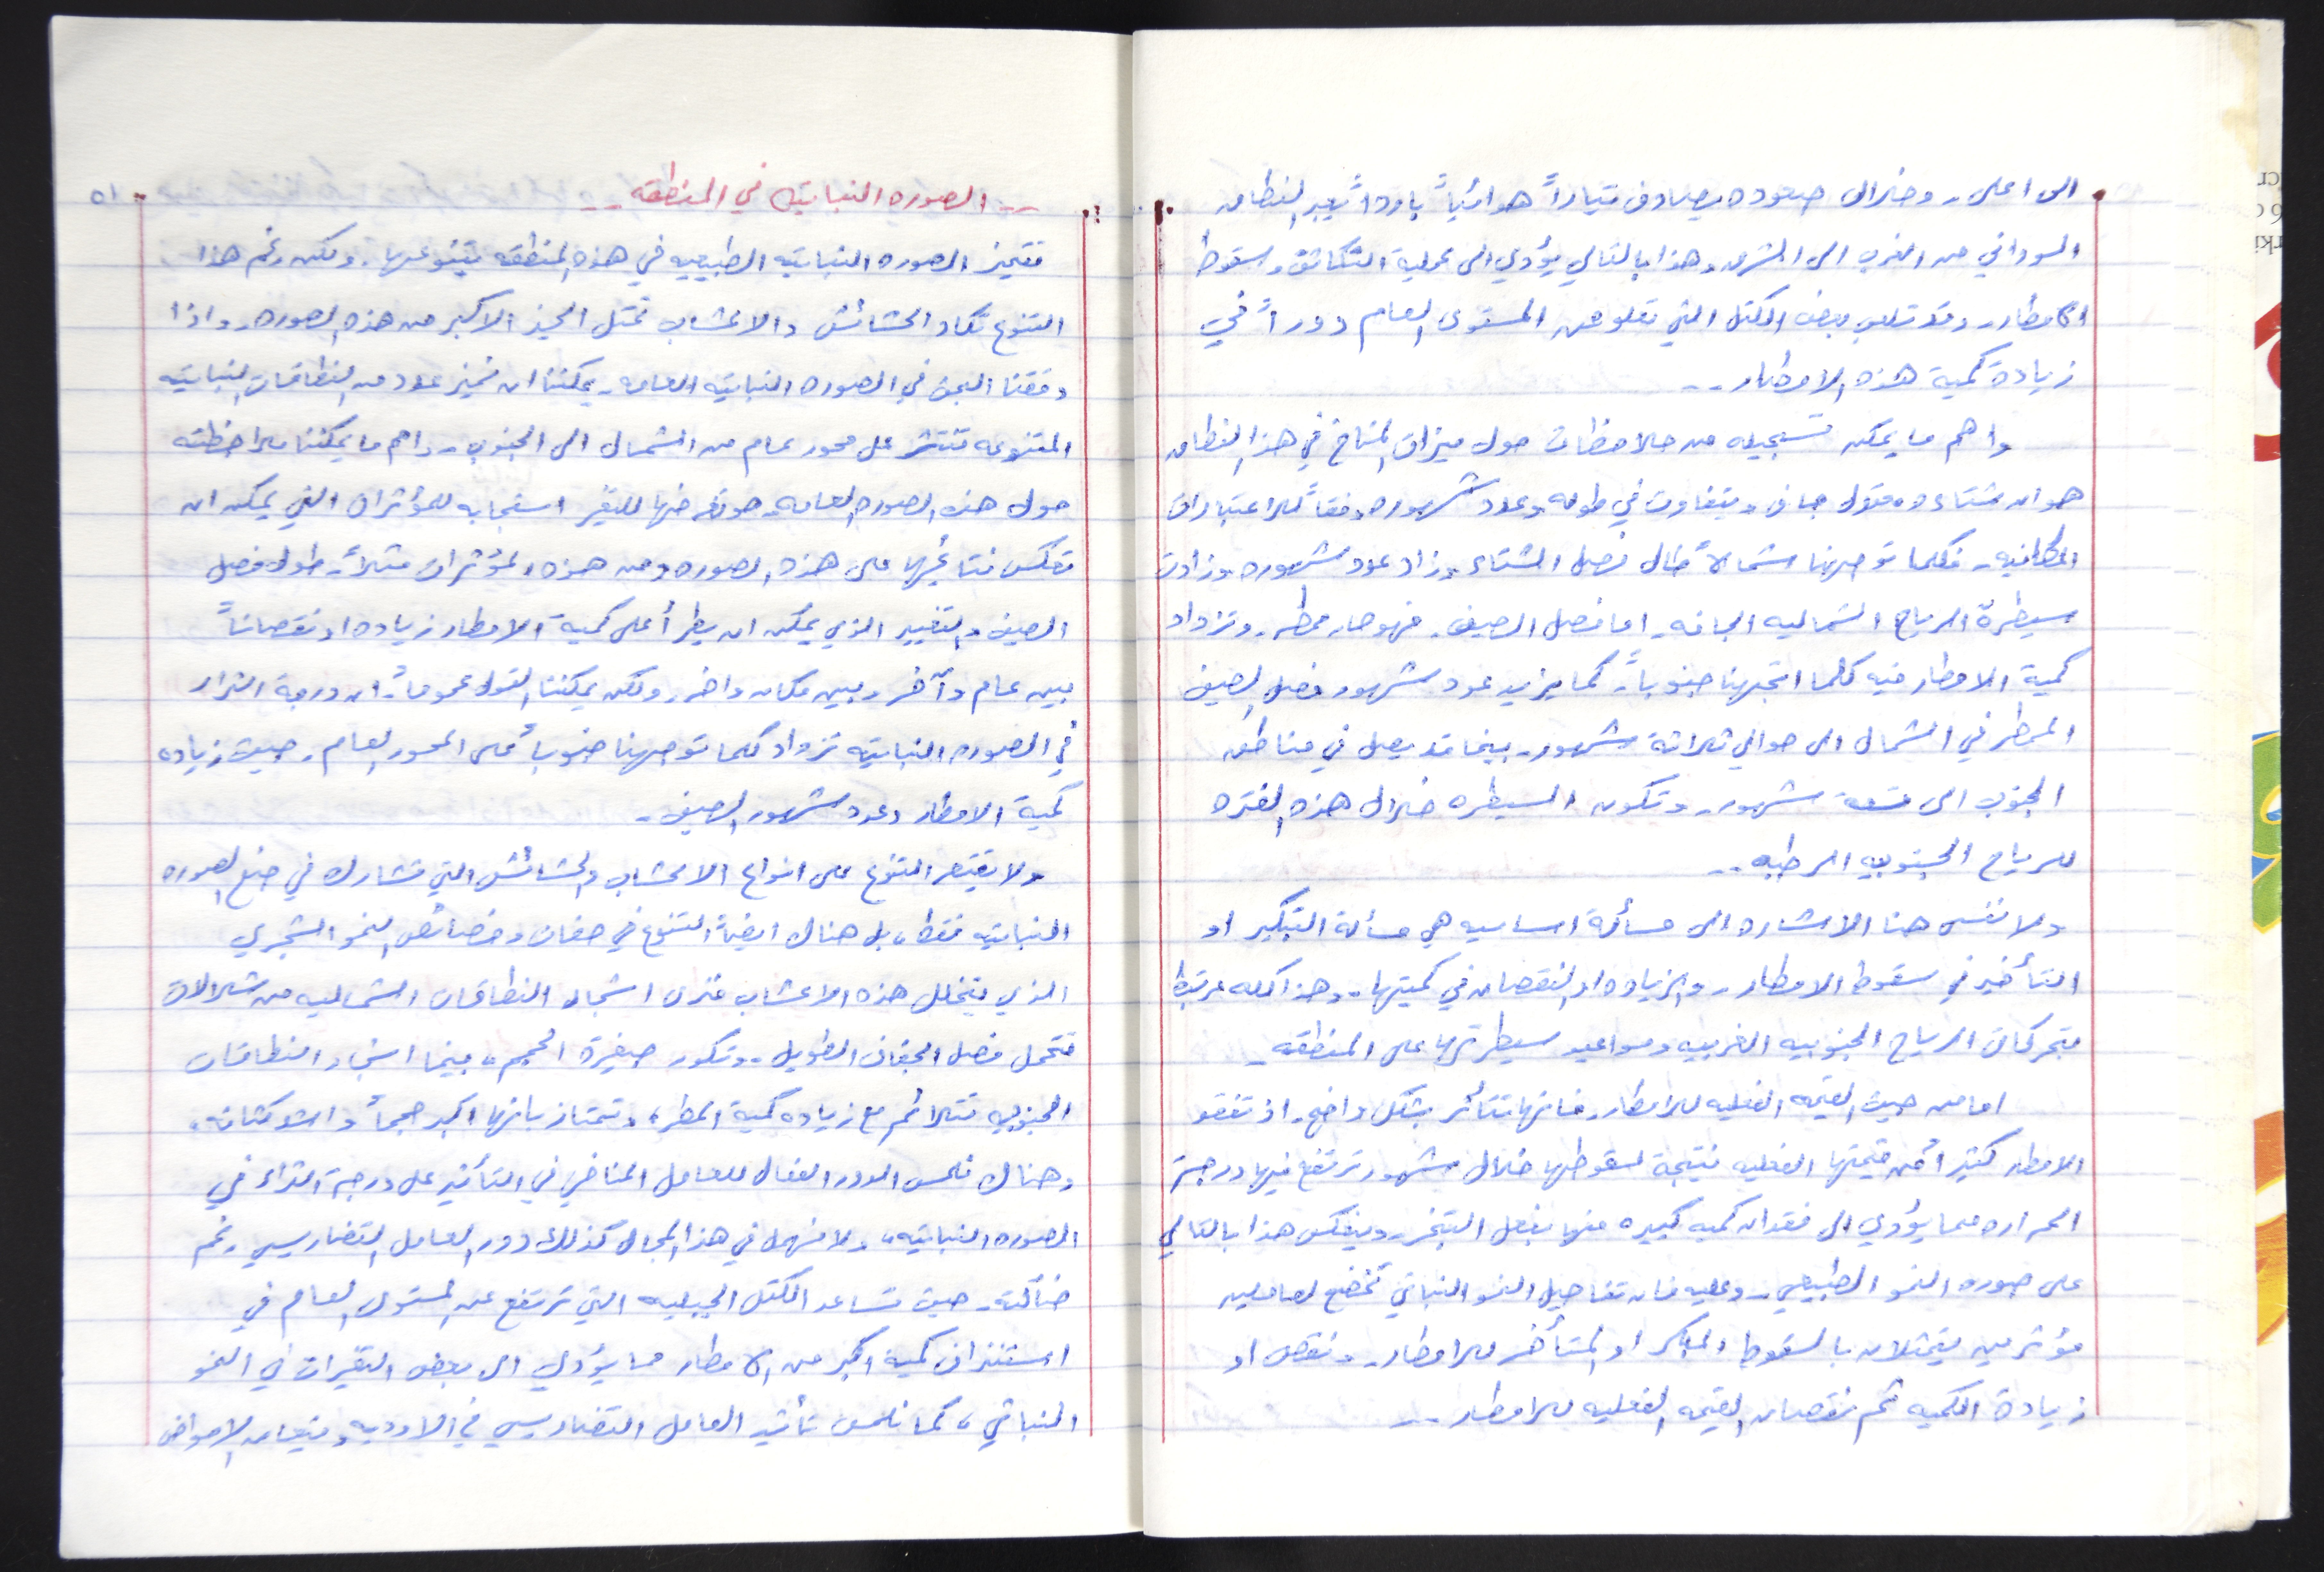 الى اعلى - وخلال صعوده يصادف تياراً هوائياً بارداً يعبر النطاق
السوداني من الغرب الى الشرق وهذا بالتالي يؤدي الى عملية التكاثف وسقوط
الامطار - وقد تلعب بعض الكتل التي تعلو عن المستوى العام دوراً في
زيادة كمية هذه الامطار --
واهم ما يمكن تسجيله من ملاحظات حول ميزات المناخ في هذا النطاق
هو ان شتاءه جاف ويتفاوت في طوله وعدد شهوره وفقاً للاعتبارات
المكانيه - فكلما توجهنا شمالاً طال فصل الشتاء وزاد عدد شهوره وزادت
سيطرة الرياح الشماليه الجافه - اما فصل الصيف - فهو حار ممطر - وتزداد
كمية الامطار فيه كلما اتجهنا جنوباً - كما يزيد عدد شهور فصل الصيف
الممطر في الشمال الى حوالي ثلاثة شهور - بينما قد يصل في مناطق
الجنوب الى تسعة شهور - وتكون السيطره خلال هذه الفتره
للرياح الجنوبيه الرطبه --
ولا ننسى هنا الاشاره الى مسألة اساسيه هي مسألة التبكير او
التأخير في سقوط الامطار - والزياده او النقصان في كميتها - وهذا كله مرتبط
بتحركات الرياح الجنوبيه الغربيه ومواعيد سيطرتها على المنطقه -
اما من حيث القيمه الفعليه للامطار - فانها تتأثر بشكل واضح - اذ تفقد
الامطار كثيراً من قيمتها الفعليه نتيجة لسقوطها خلال شهور ترتفع فيها درجة
الحراره مما يؤدي الى فقدان كميه كبيره منها بفعل التبخر - وينعكس هذا بالتالي
على صوره النمو الطبيعي - وعليه فان تفاصيل النمو النباتي تخضع لعاملين
مؤثرين يتمثلان بالسقوط المبكر او المتأخر للامطار - ونقص او
زيادة الكميه ثم نقصان القيمه الفعليه للامطار --
٥١
-- الصوره النباتيه في المنطقه --
تتميز الصوره النباتيه الطبيعيه في هذه المنطقه بتنوعها - ولكن رغم هذا
التنوع تكاد الحشائش والاعشاب تحتل الحيز الاكبر من هذه الصوره - واذا
دققنا البحث في الصوره النباتيه العامه - يمكننا ان نميز عدد من النطاقات النباتيه
المتنوعه تنتشر على محور عام من الشمال الى الجنوب - واهم ما يمكننا ملاحظته
حول هذه الصوره العامه هو تعرضها للتغير استجابه للمؤثرات التي يمكن ان
تعكس نتائجها على هذه الصوره ومن هذه المؤثرات مثلاً - طول فصل
الصيف والتغيير الذي يمكن ان يطرأ على كمية الامطار زياده او نقصاناً
بين عام وآخر وبين مكان واخر - ولكن يمكننا القول عموماً - ان درجة الثراء
في الصوره النباتيه تزداد كلما توجهنا جنوباً على المحور العام - حيث زياده
كمية الامطار وعدد شهور الصيف -
ولا يقتصر التنوع على انواع الاعشاب والحشائش التي تشارك في صنع الصوره
النباتيه فقط، بل هناك ايضاً التنوع في صفات وخصائص النمو الشجري
الذي يتخلل هذه الاعشاب فترى اشجار النطاقات الشماليه من سلالات
تتحمل فصل الجفاف الطويل - وتكون صغيرة الحجم، بينما اشجار النطاقات
الجنوبيه تتلائم مع زياده كمية المطر، وتمتاز بانها اكبر حجماً واشد كثافه،
وهناك نلمس الدور الفعال للعامل المناخي في التأثير على درجة الثراء في
الصوره النباتيه، ولا نهمل في هذا المجال كذلك دور العامل التضاريسي رغم
ضآلته - حيث تساعد الكتل الجبليه التي ترتفع عن المستوى العام في
استنزاف كمية اكبر من الامطار مما يؤدي الى بعض التغيرات في النمو
النباتي، كما نلمس تأثير العامل التضاريسي في الاوديه وقيعان الاحواض